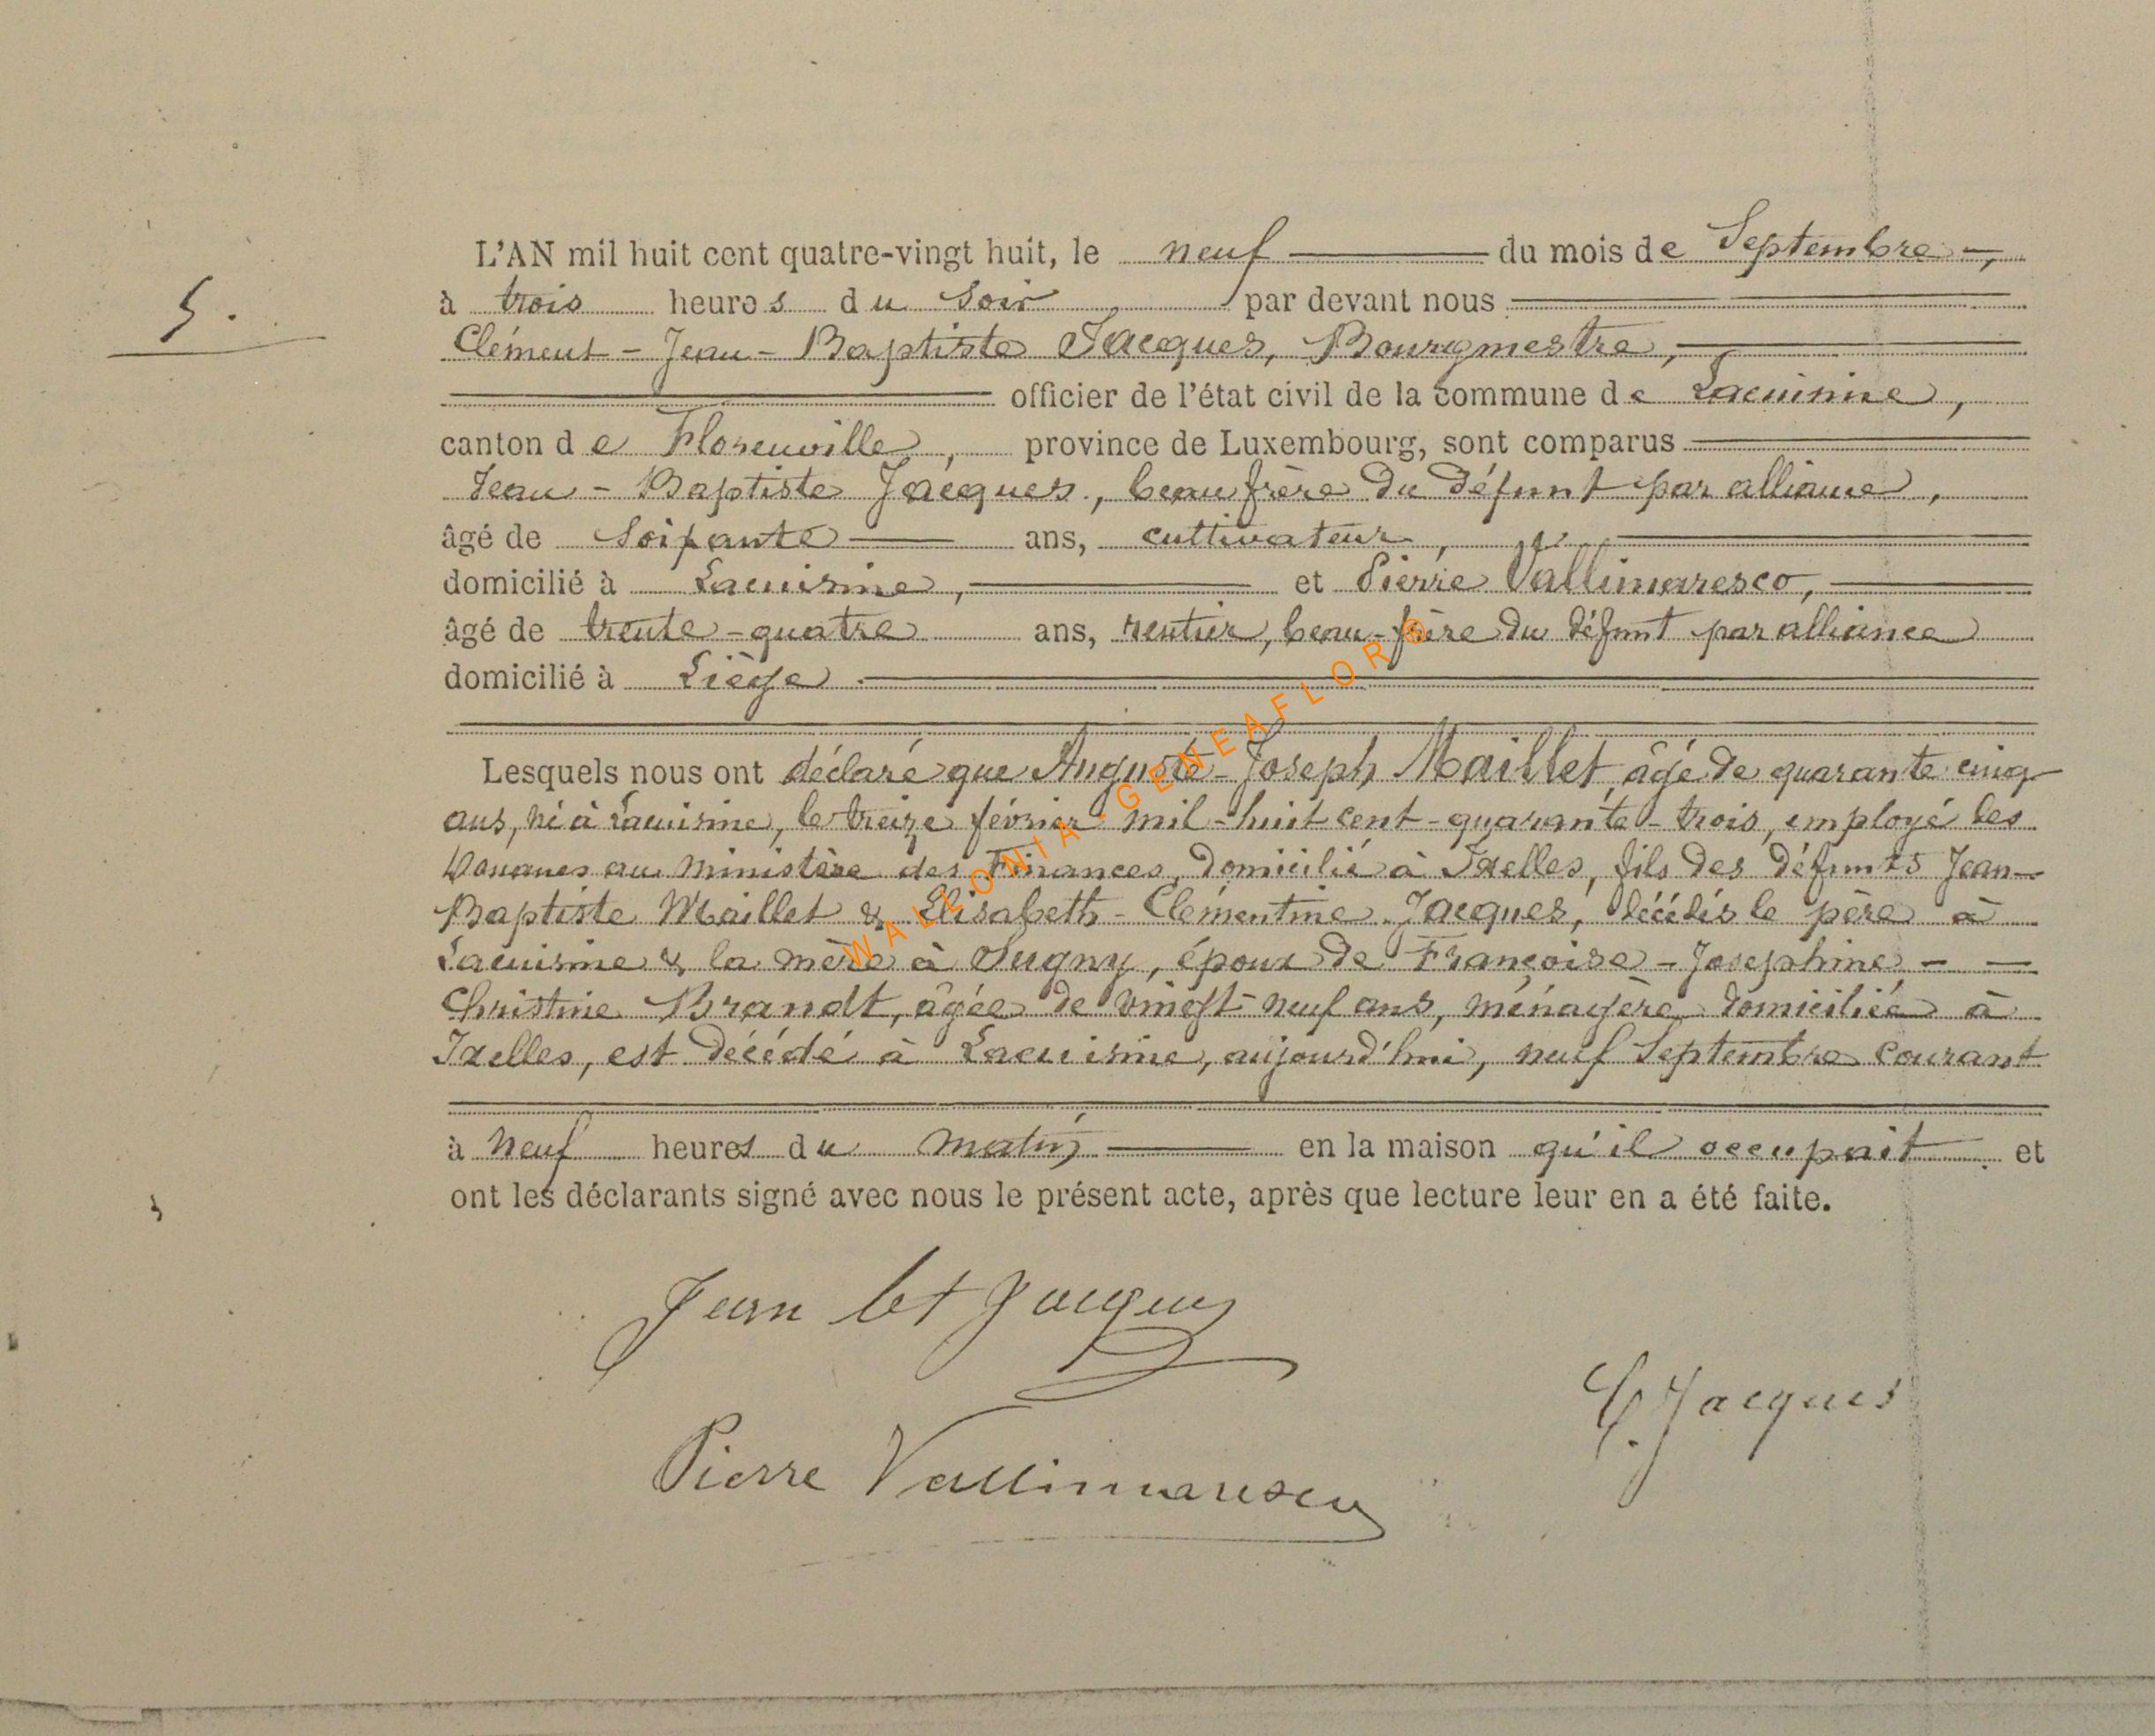 L'AN mil huit cent quatre-vingt huit, le neuf du mois de Septembre,
5.
à trois heures du Soir par devant nous
Clément - Jean - Baptiste Jacques, Bourgmestre,
officier de l'état civil de la commune de Lacuisine,
canton de Florenville, province de Luxembourg, sont comparus
Jean - Baptiste Jacques, beau frère du défunt par alliance,
âgé de Soixante ans, cultivateur,
domicilié à Lacuisine, et Pierre Vallimaresco,
âgé de trente-quatre ans, rentier, beau-frère du défunt par alliance
domicilié à Liège.
Lesquels nous ont déclaré que Auguste-Joseph Maillet, âgé de quarante cinq
ans, né à Lacuisine, le treize février mil-huit cent-quarante-trois, employé des
Douanes au Ministère des Finances, domicilié à Ixelles, fils des défunts Jean-
Baptiste Maillet & Elisabeth-Clémentine Jacques, décédés le père à
Lacuisine & la mère à Sugny, époux de Françoise-Joséphine - -
Christine Brandt, âgée de vingt-neuf ans, ménagère domiciliée à
Ixelles, est décédé à Lacuisine, aujourd'hui, neuf Septembre courant
à neuf heures du matin en la maison qu'il occupait et
ont les déclarants signé avec nous le présent acte, après que lecture leur en a été faite.
Jean bt Jacques
C. Jacques
Pierre Vallimaresco
WALLONIA-GENEAFLOR®